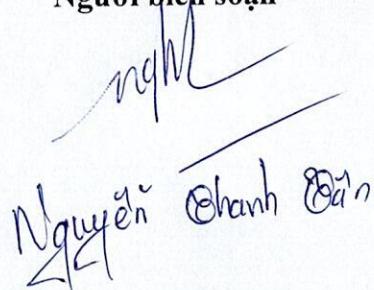 Người biên soạn
Nguyễn Thanh Tân